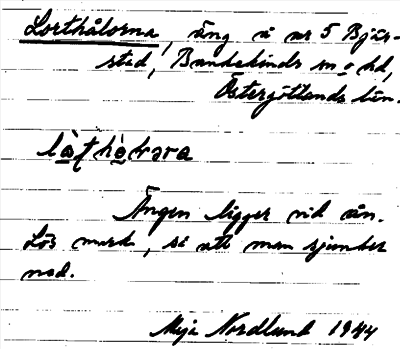 Lorthålorna, äng å nr 5 Bjär-
stad, Bankekinds sn o hd,
Östergötlands län.
Ängen ligger vid ån.
Lös mark, så att man sjunker
ned.
Maja Nordlund 1944